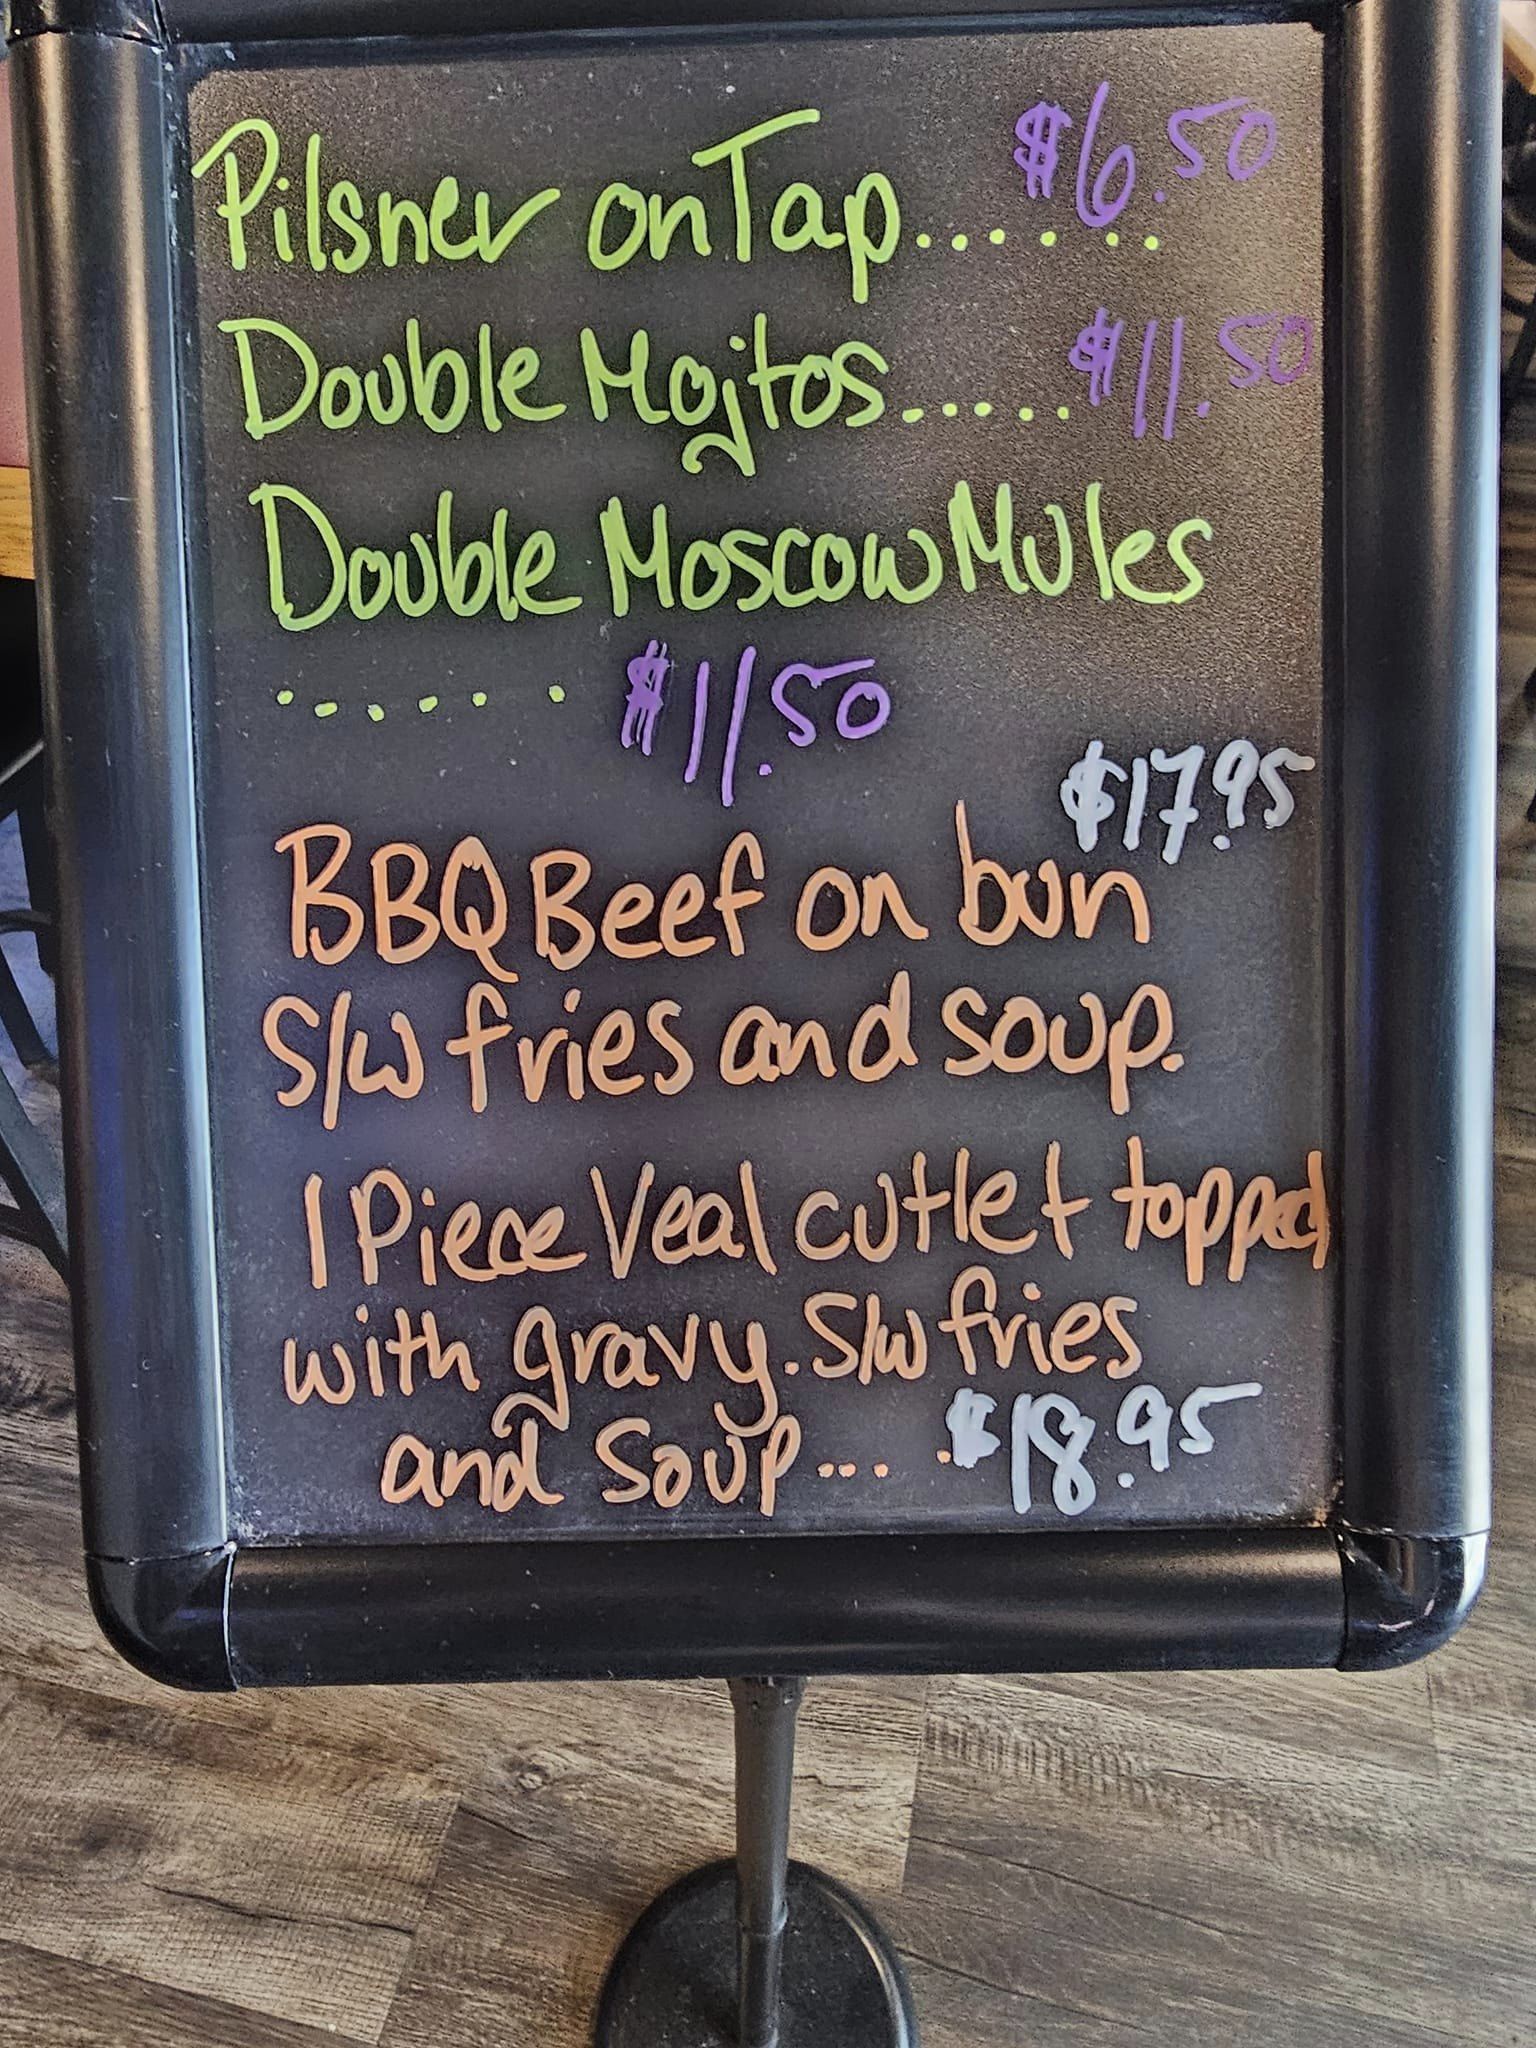 Pilsner on Tap...... $6.50
Double Mojitos..... $11.50
Double Moscow Mules
...... $11.50
$17.95
BBQ Beef on bun
S/w fries and soup.
1 Piece Veal cutlet topped
with gravy. S/w fries
and soup... .$18.95